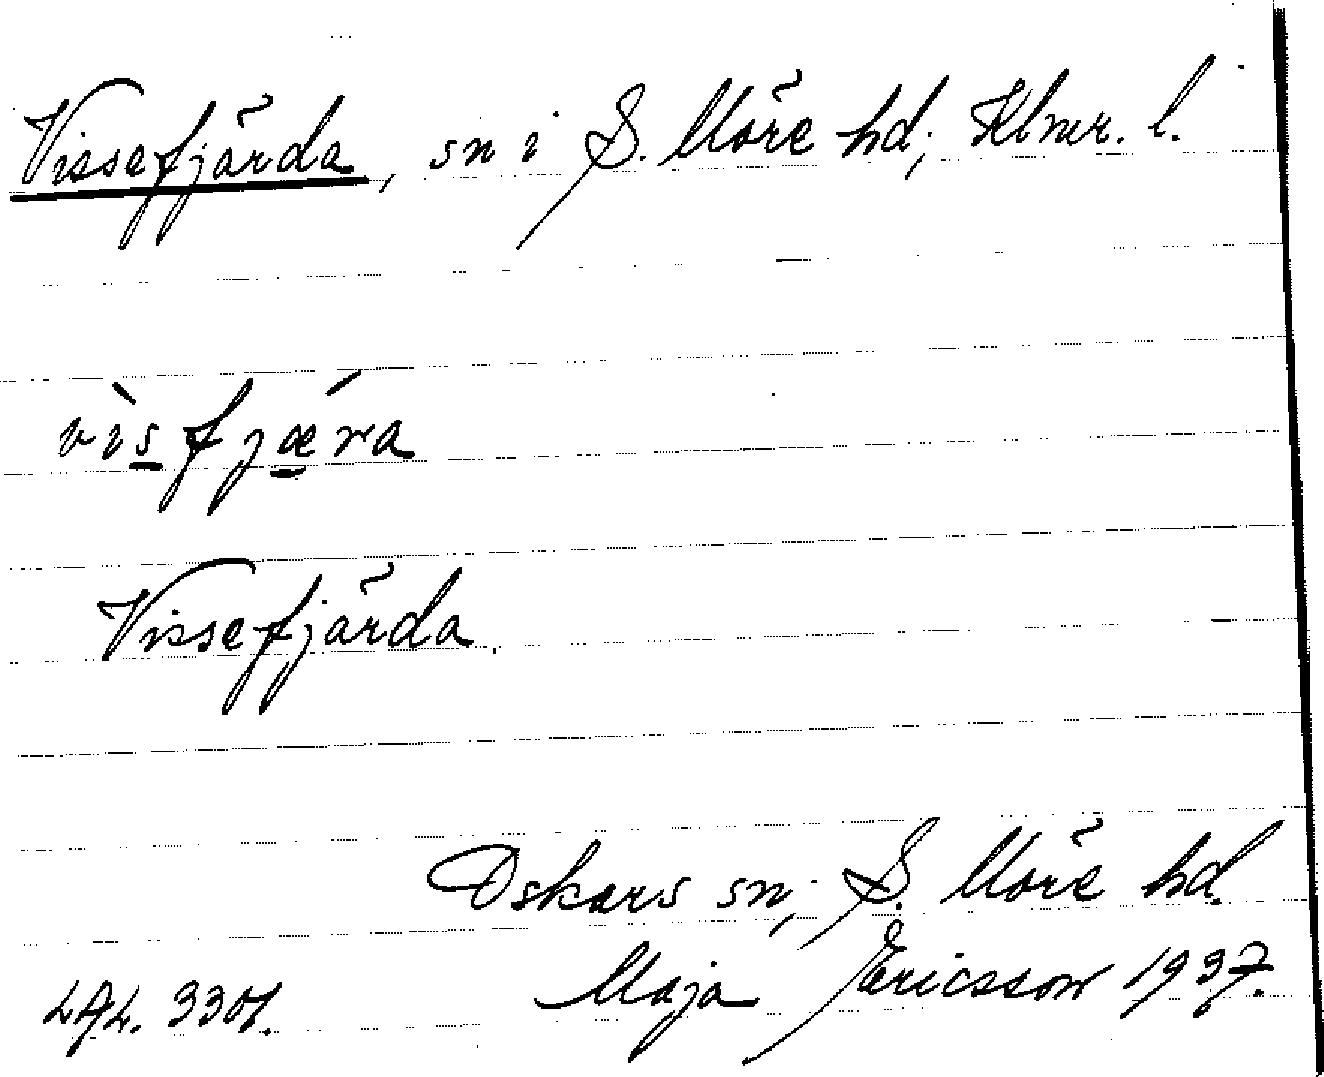 Vissefjärda, sn i S. Möre hd, Klmr. l.
vìsfjǽra
Vissefjärda.
Oskars sn, S. Möre hd.
Maja Ericsson 1937.
LAL. 3301.